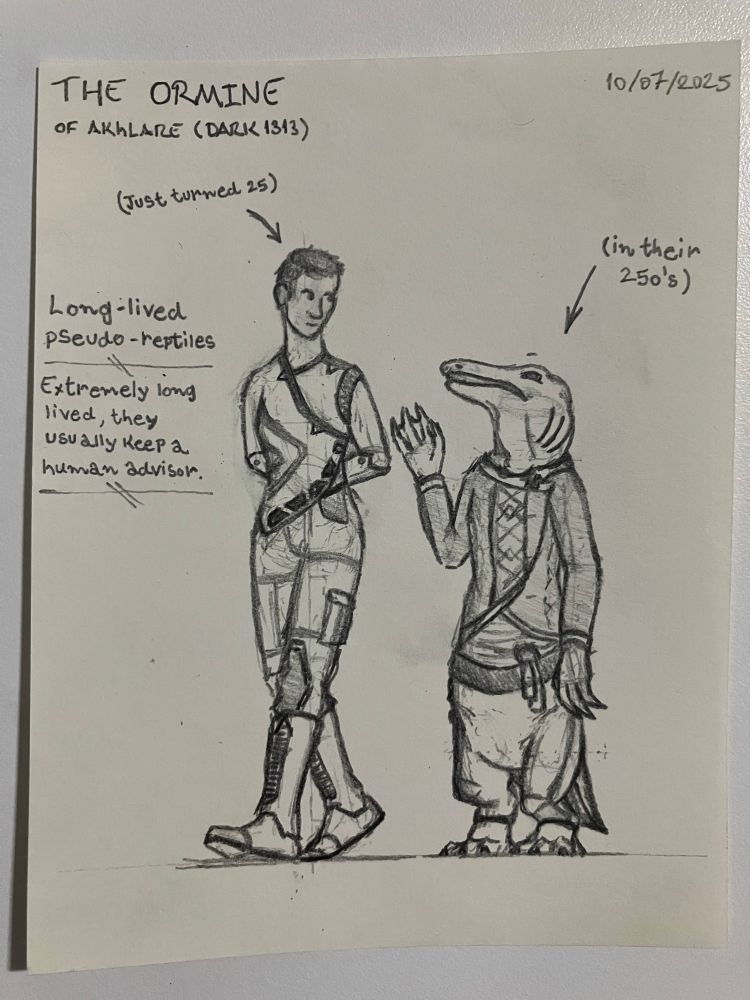 THE ORMINE
10/07/2025
OF AKHLARE (DARK 1313)
(Just turned 25)
(in their
250's)
Long-lived
pseudo-reptiles
Extremely long
lived, they
usually keep a
human advisor.